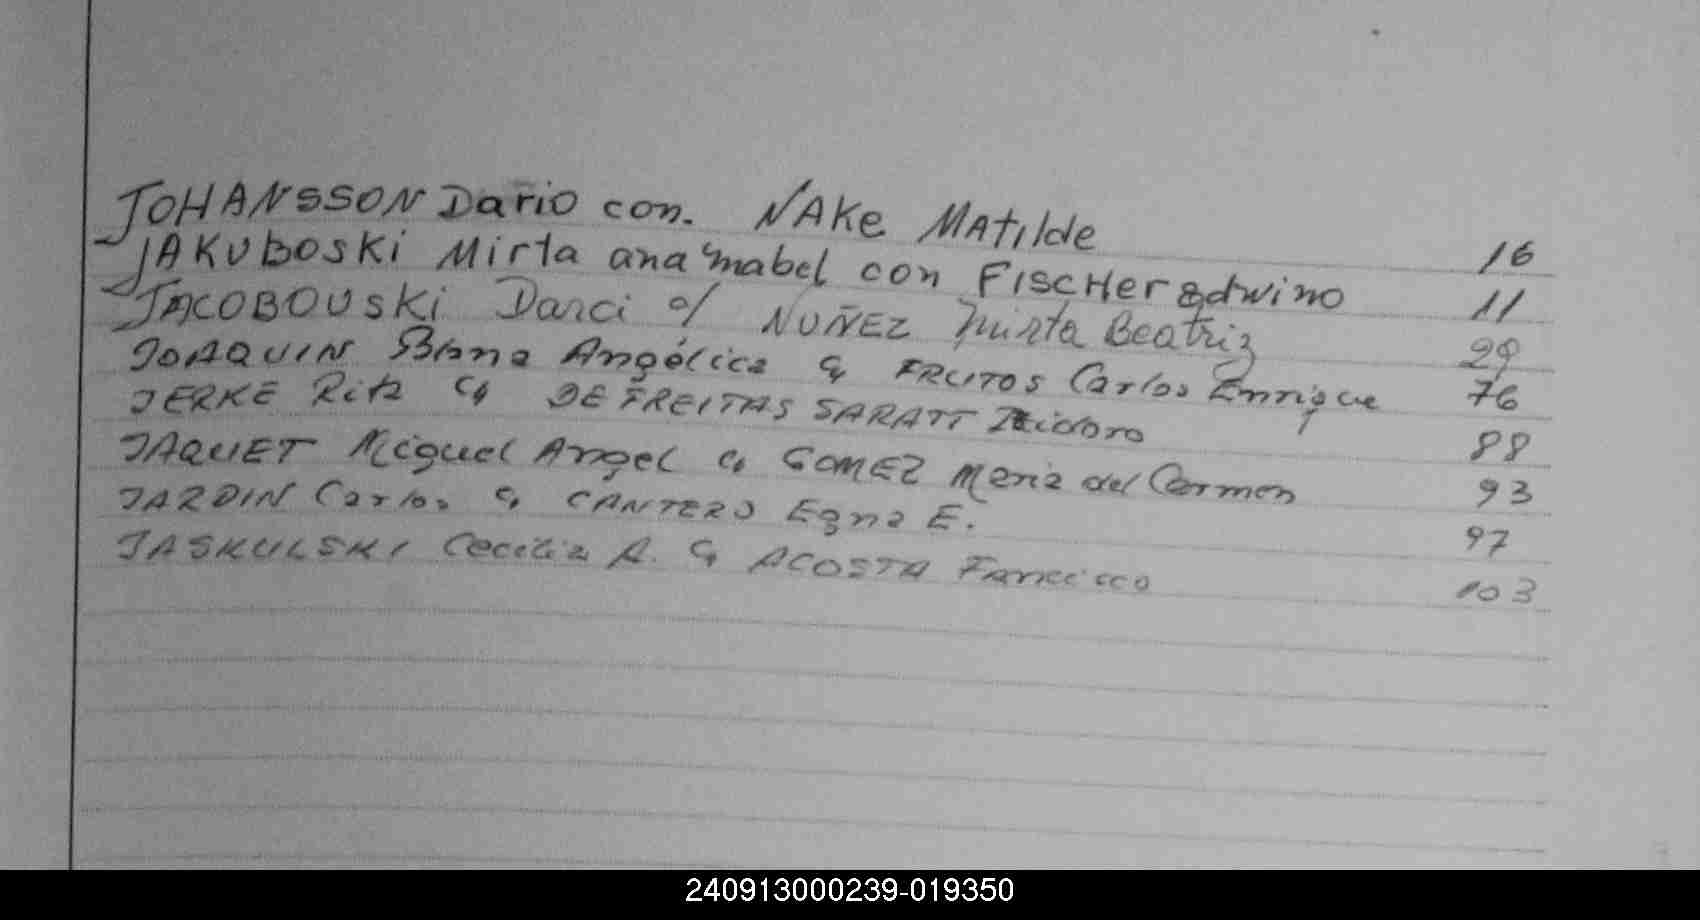 JOHANSSON Dario con. NAKe MAtilde 16
JAKUBOSKi Mirta ana mabel con FiscHer edwino 11
JACOBOUSKi Darci c/ NUÑEZ Mirta Beatriz 29
JOAQUIN Angélica c/ FRUTOS Carlos Enrrique 76
JERKE Rita c/ DE FREITAS SARATT 88
JAQUET Miguel Angel c/ GOMEZ Maria del Carmen 93
JARDIN Carlos c/ CANTERO E. 97
JASKULSKI Cecilia A. c/ ACOSTA 103
240913000239-019350